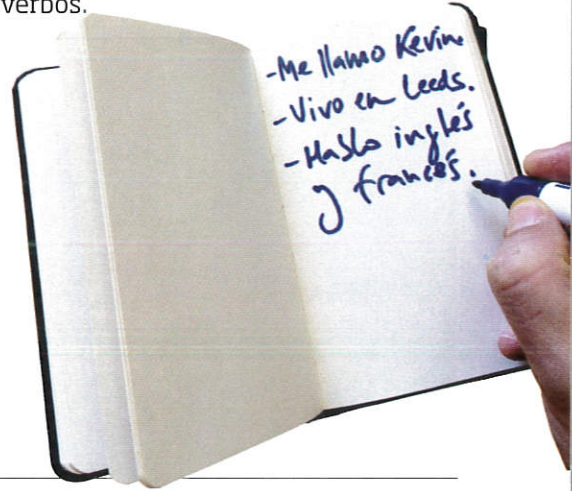 verbos.
-Me llamo Kevin.
-Vivo en Leeds.
-Hablo inglés
y francés.